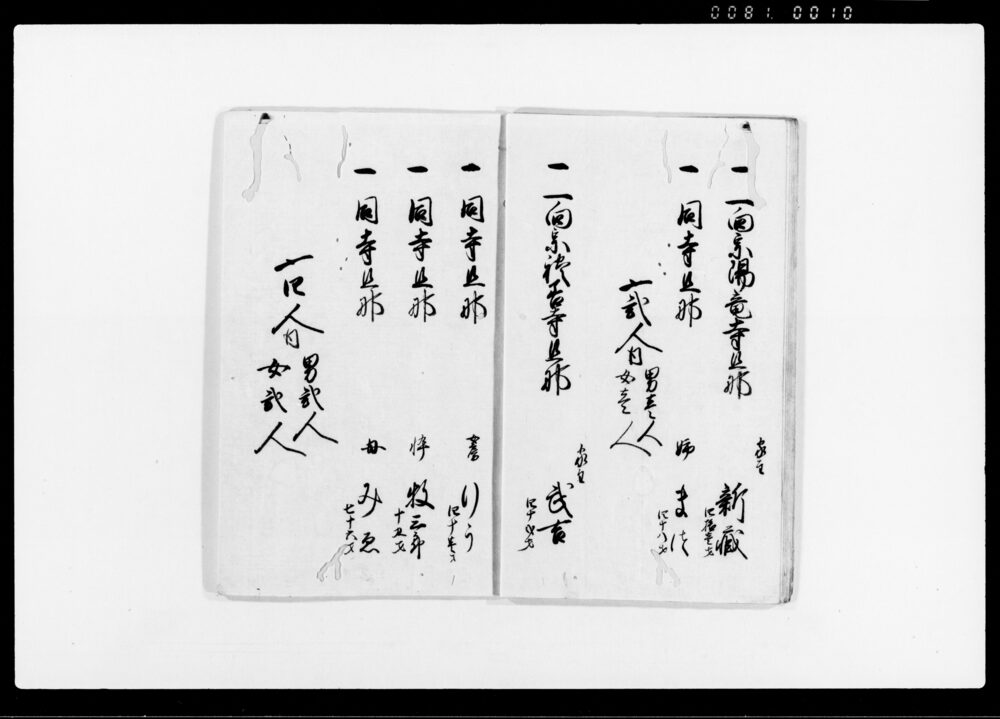 0081. 0010
一 一向宗陽竜寺旦那
家主
新蔵
四拾壱才
一 同寺旦那
姉
まつ
四十八才
〆弐人内
男壱人
女壱人
一 一向宗徳善寺旦那
家主
武吉
一 同寺旦那
妻
りう
一 同寺旦那
悴
牧三郎
十五才
一 同寺旦那
母
みゑ
七十六才
〆四人内
男弐人
女弐人